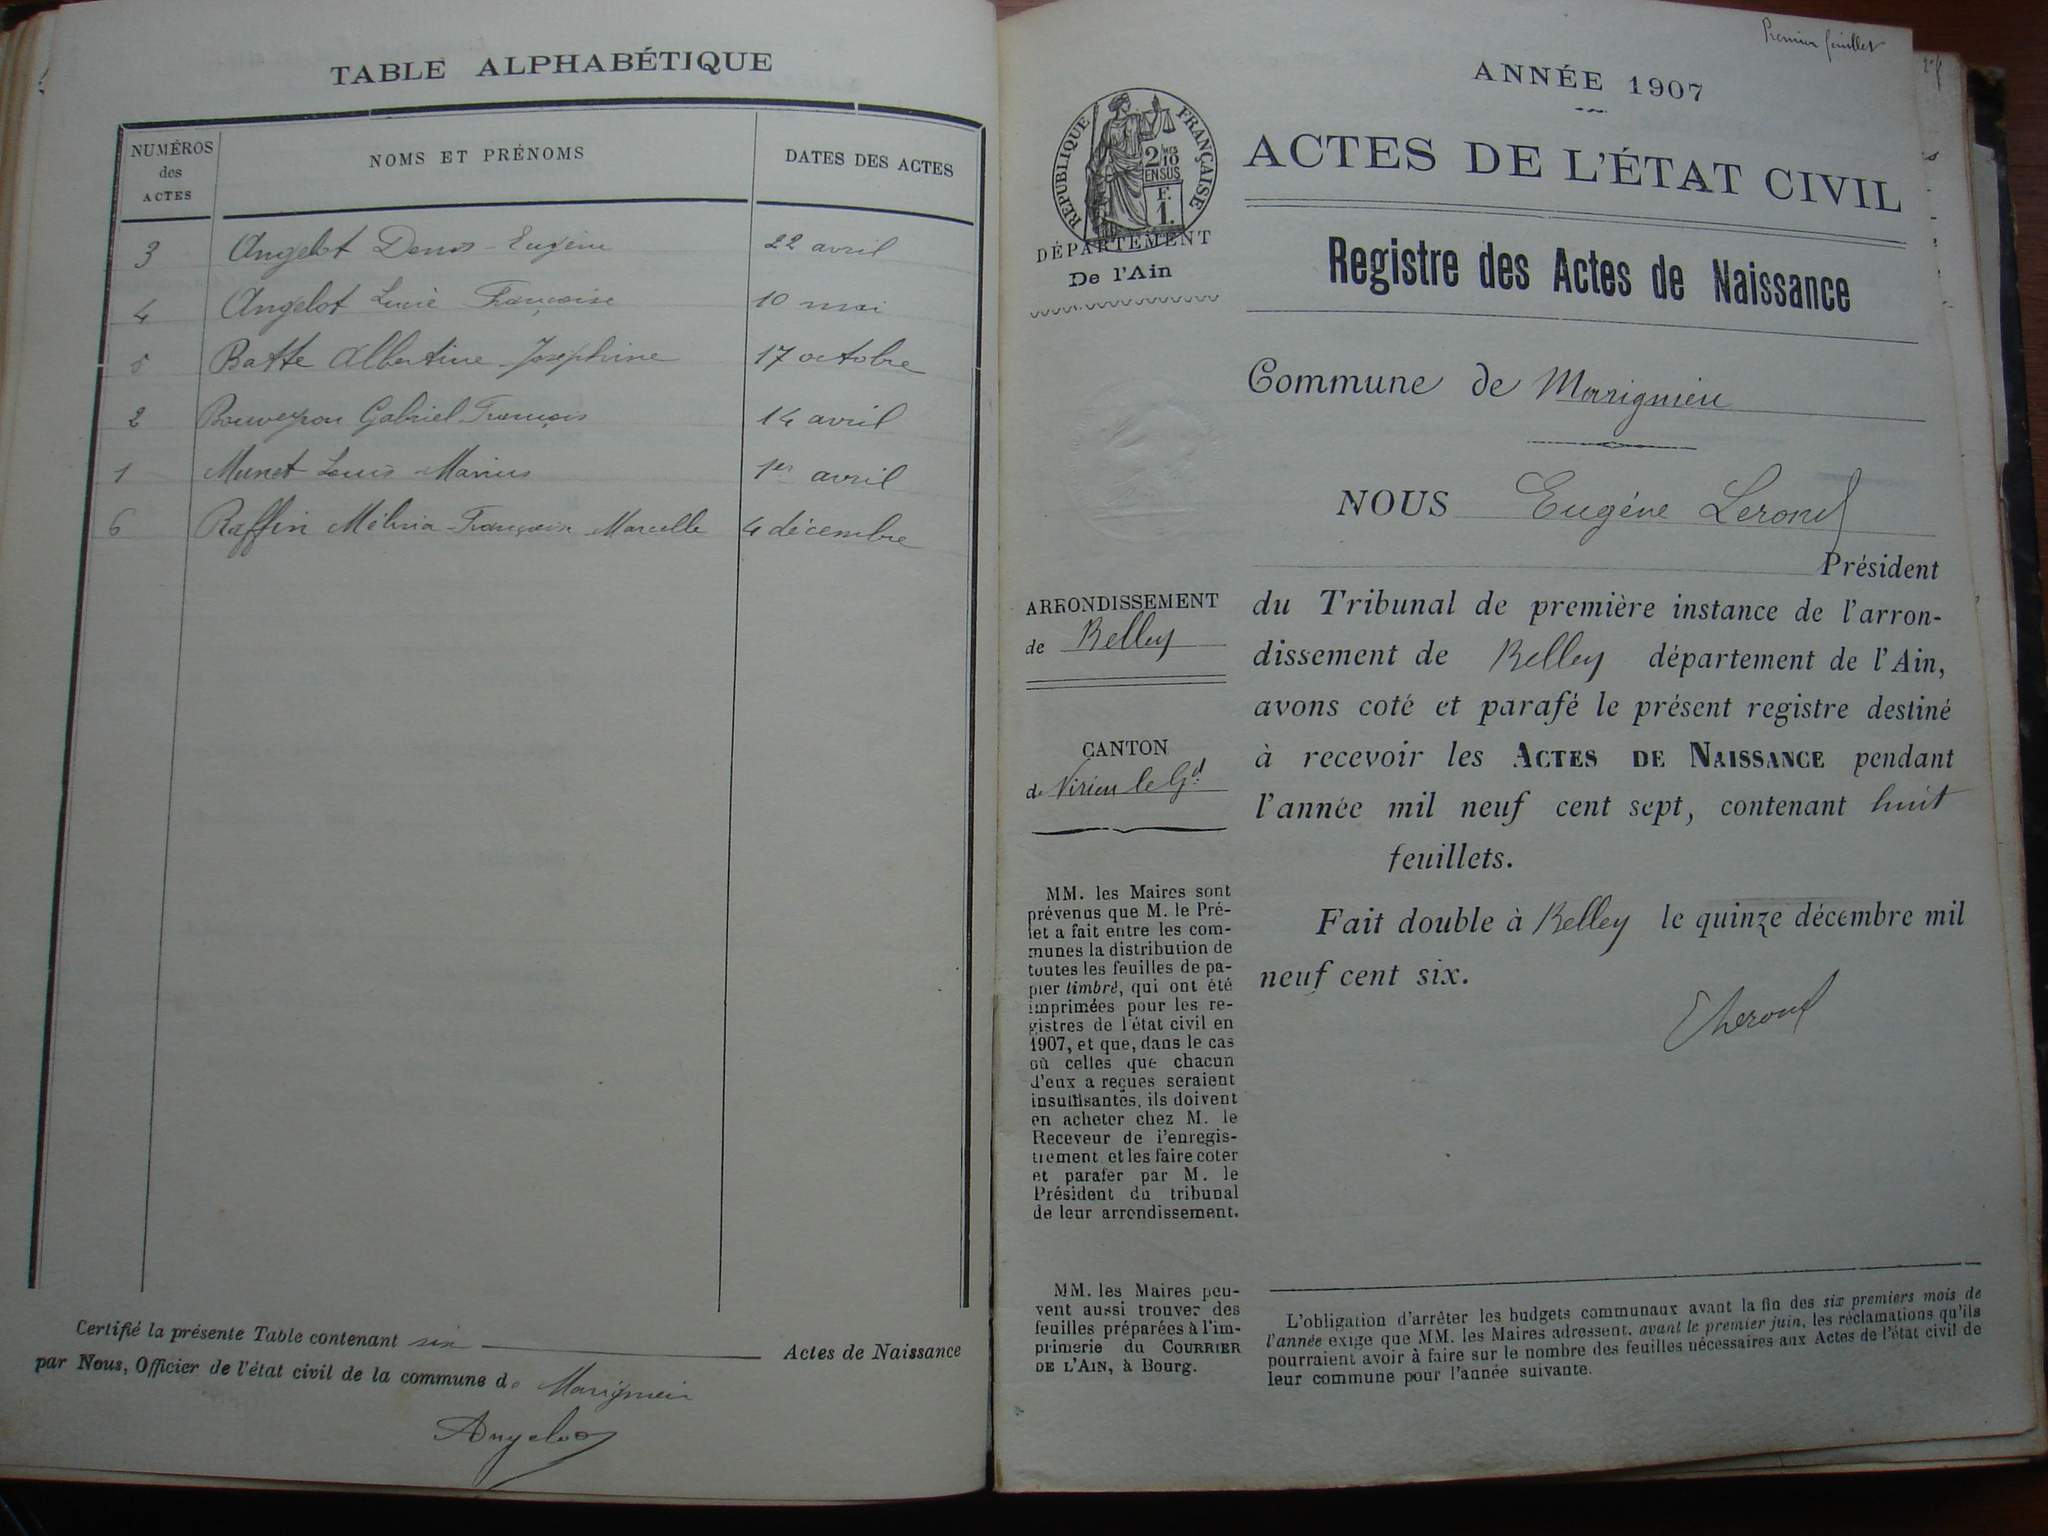 TABLE ALPHABÉTIQUE
NUMÉROS des ACTES
NOMS ET PRÉNOMS
DATES DES ACTES
3 Angelot Denis Eugène 22 avril
4 Angelot Lucie Françoise 10 mai
5 Batte Albertine Joséphine 17 octobre
2 Bouveyron Gabriel François 14 avril
1 Munet Louis Marius 1er avril
6 Raffin Mélina Françoise Marcelle 4 décembre
Certifié la présente Table contenant six Actes de Naissance
par Nous, Officier de l'état civil de la commune de Marignieu
Angelot
Premier feuillet
ANNÉE 1907
RÉPUBLIQUE FRANÇAISE
2/10
EN SUS
F.
1.
ACTES DE L'ÉTAT CIVIL
DÉPARTEMENT
De l'Ain
Registre des Actes de Naissance
Commune de Marignieu
NOUS Eugène Lerond
Président
du Tribunal de première instance de l'arron-
dissement de Belley département de l'Ain,
avons coté et parafé le présent registre destiné
à recevoir les ACTES DE NAISSANCE pendant
l'année mil neuf cent sept, contenant huit
feuillets.
Fait double à Belley le quinze décembre mil
neuf cent six.
E Lerond
ARRONDISSEMENT
de Belley
CANTON
de Virieu le Gd
MM. les Maires sont
prévenus que M. le Pré-
fet a fait entre les com-
munes la distribution de
toutes les feuilles de pa-
pier timbré, qui ont été
imprimées pour les re-
gistres de l'état civil en
1907, et que, dans le cas
où celles que chacun
d'eux a reçues seraient
insuffisantes, ils doivent
en acheter chez M. le
Receveur de l'enregis-
trement et les faire coter
et parafer par M. le
Président du tribunal
de leur arrondissement.
MM. les Maires peu-
vent aussi trouver des
feuilles préparées à l'im-
primerie du COURRIER
DE L'AIN, à Bourg.
L'obligation d'arrêter les budgets communaux avant la fin des six premiers mois de
l'année exige que MM. les Maires adressent, avant le premier juin, les réclamations qu'ils
pourraient avoir à faire sur le nombre des feuilles nécessaires aux Actes de l'état civil de
leur commune pour l'année suivante.